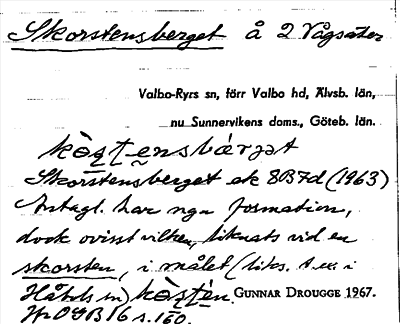 Skorstensberget å 2 Vågsäter
Valbo-Ryrs sn, förr Valbo hd, Älvsb. län,
nu Sunnervikens doms., Göteb. län.
Skorstensberget ek 8B7d (1963)
Antagl. har ngn formation,
dock ovisst vilken, liknats vid en
skorsten, i målet (liks. t.ex. i
Håbols sn) GUNNAR DROUGGE 1967.
OGB 16 s. 150.